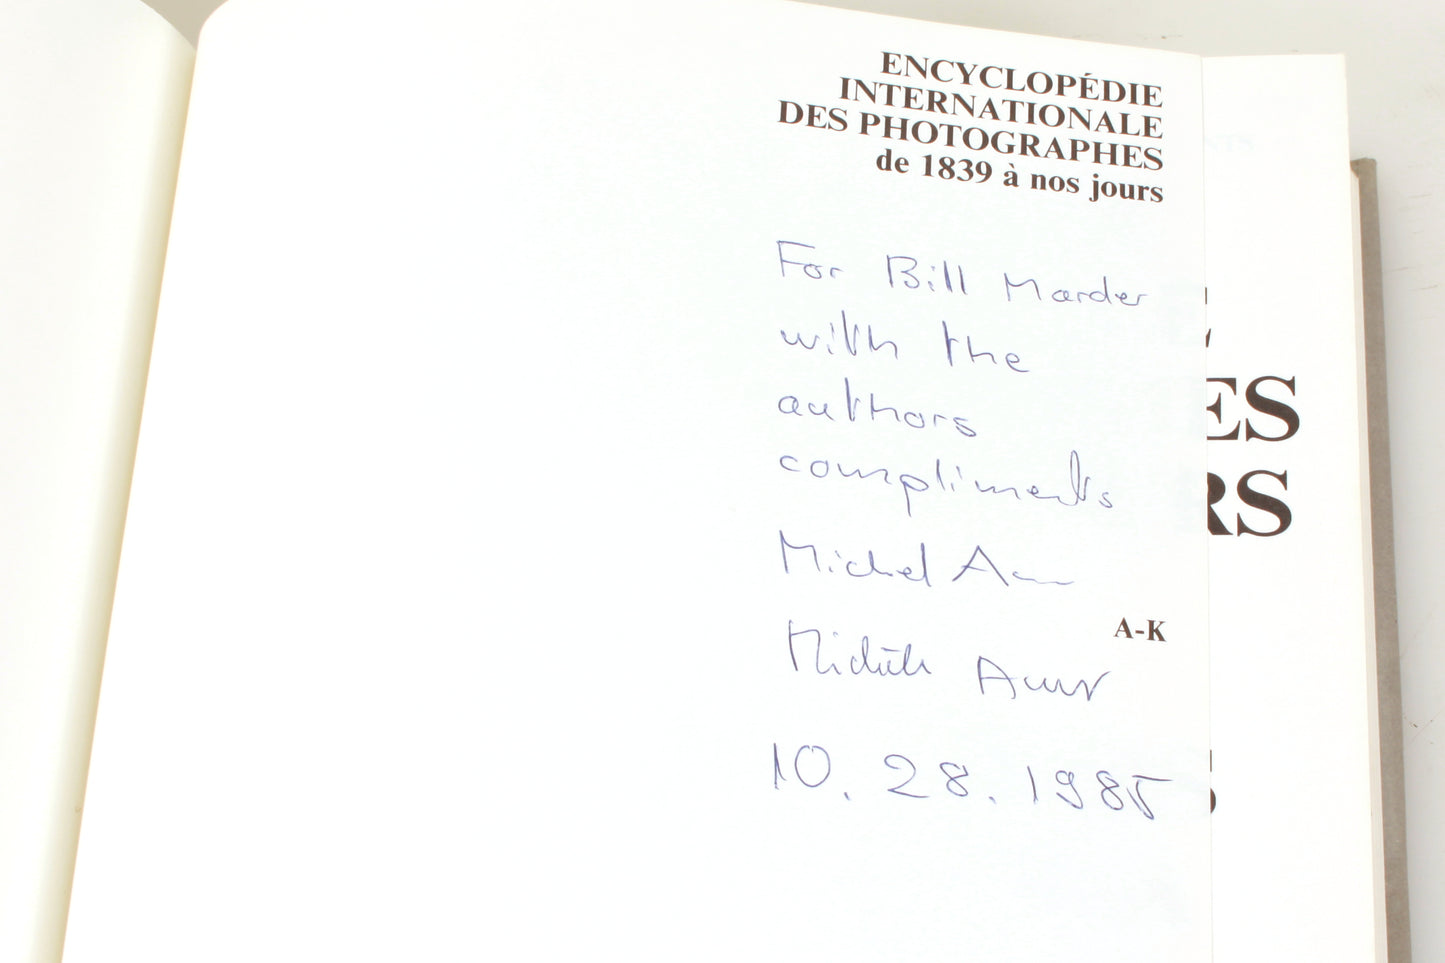 ENCYCLOPÉDIE
INTERNATIONALE
DES PHOTOGRAPHES
de 1839 à nos jours
For Bill Marder
with the
authors
compliments
Michel Auer
A-K
Michèle Auer
10. 28. 1985
ES
RS